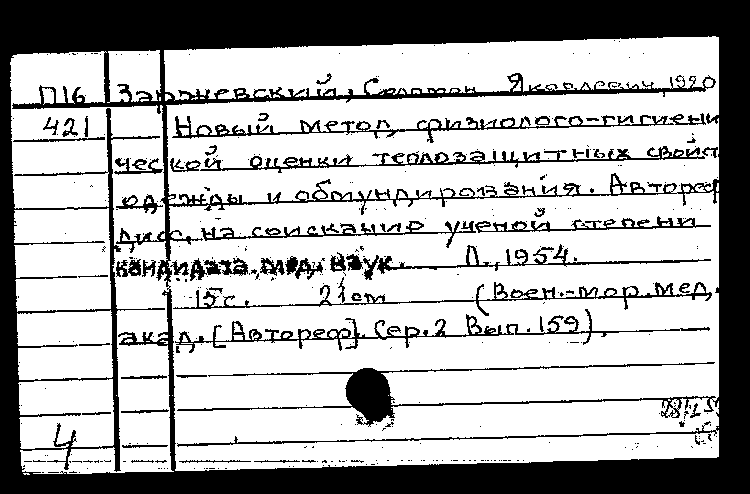 П16 Заржевский, Соломон Яковлевич, 1920
421 Новый метод физиолого-гигиени
ческой оценки теплозащитных свойст
одежды и обмундирования. Автореф
дисс. на соискание ученой степени
кандидата мед. наук. Л., 1954.
15с. 21см (Воен.-мор. мед.
акад. [Автореф]. Сер. 2 Вып. 159).
4